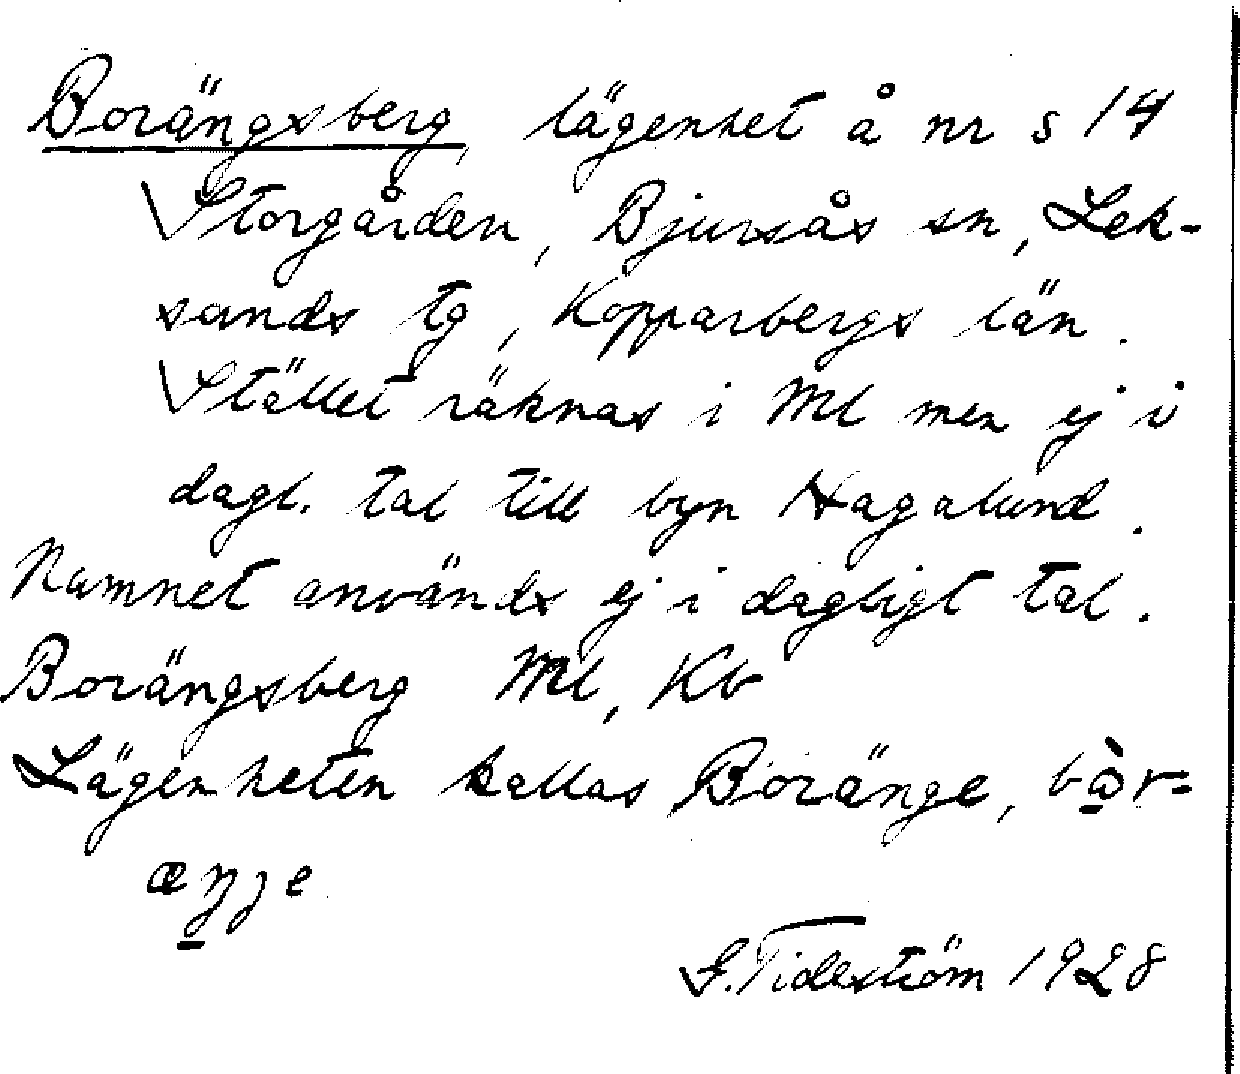 Borängsberg, lägenhet å nr s 14
Storgården, Bjursås sn, Lek-
sands tg, Kopparbergs län.
Stället räknas i Ml men ej i
dagl. tal till byn Hagalund.
Namnet användx ej i dagligt tal.
Borängsberg Ml, Kb
Lägenheten kallas Boränge, bɑ̀r-
æŋje
G. Tideström 1928